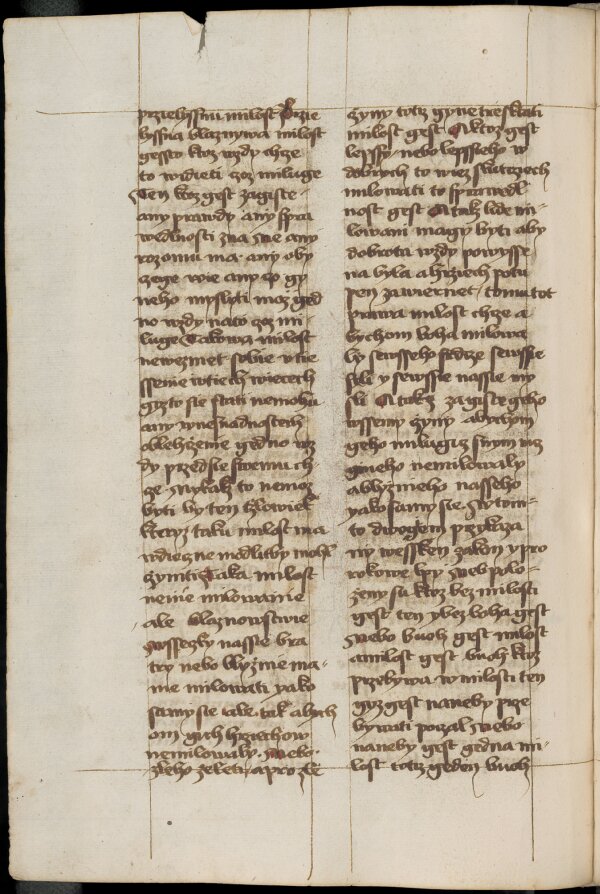 prziebyssnu milost Przie
byssna blaznywa milost
gessto ktoz wzdy chze
to widieti czoz miluge
Ten ktoz gest zagiste
any prawdy any spra
wedlnosti zna Ne any
rozomu ma any oby
czege wie any czo gy
neho mysliti moz ged
no wzdy nato czoz mi
luge Takowa milost
newezmet sobie vtie
ssenie wtiech wieczech
gizto sie stati nemohu
any wnesnadnostech
oblehczenie gedno wz
dy przedsie swemu ch
cze Nytakz to nemoz
byti by ten czlowiek
kteryz taku milost ma
wdiecne modlitby mohl
czyniti Taka milost
nenie milowanie
ale blaznowstwie
Mussezly nassie bra
try nebo blyznie ma
me milowati yako
samy sie ale tak abych
om gich hrziechow
nemilowaly Nebo
zleho zeleti a pro zle
czyny totiz gyne treskati
milost gest A ktoz gest
lepssy nebo lepssieho w
dobrych to wiez swiecziech
milowati to sprawedl
nost gest A tak lide mi
lowani magy byti aby
dobrota wzdy powysse
na byla a hrziech potu
pen zawiernet tomu tot
prawa milost chcze a
bychom boha milowa
ly sewsseho srdcze sewssie
syly y sewssie nassie my
sli A takz zagiste geho
wssemy czyny abychom
geho milugicz snym nicz
gineho nemilowaly
a blyznieho nasseho
yako samy sie Nytom
to dwogem przikaza
ny wessken zakon y pro
rokowe Nebo polo
zeny su ktoz bez milosti
gest ten y bez boha gest
Nebo buoh gest milost
a milost gest buoh ktoz
przebywa w milosti ten
gyz gest na neby prze
bywati poczal Nebo
na neby gest gedna mi
lost totiz geden buoh